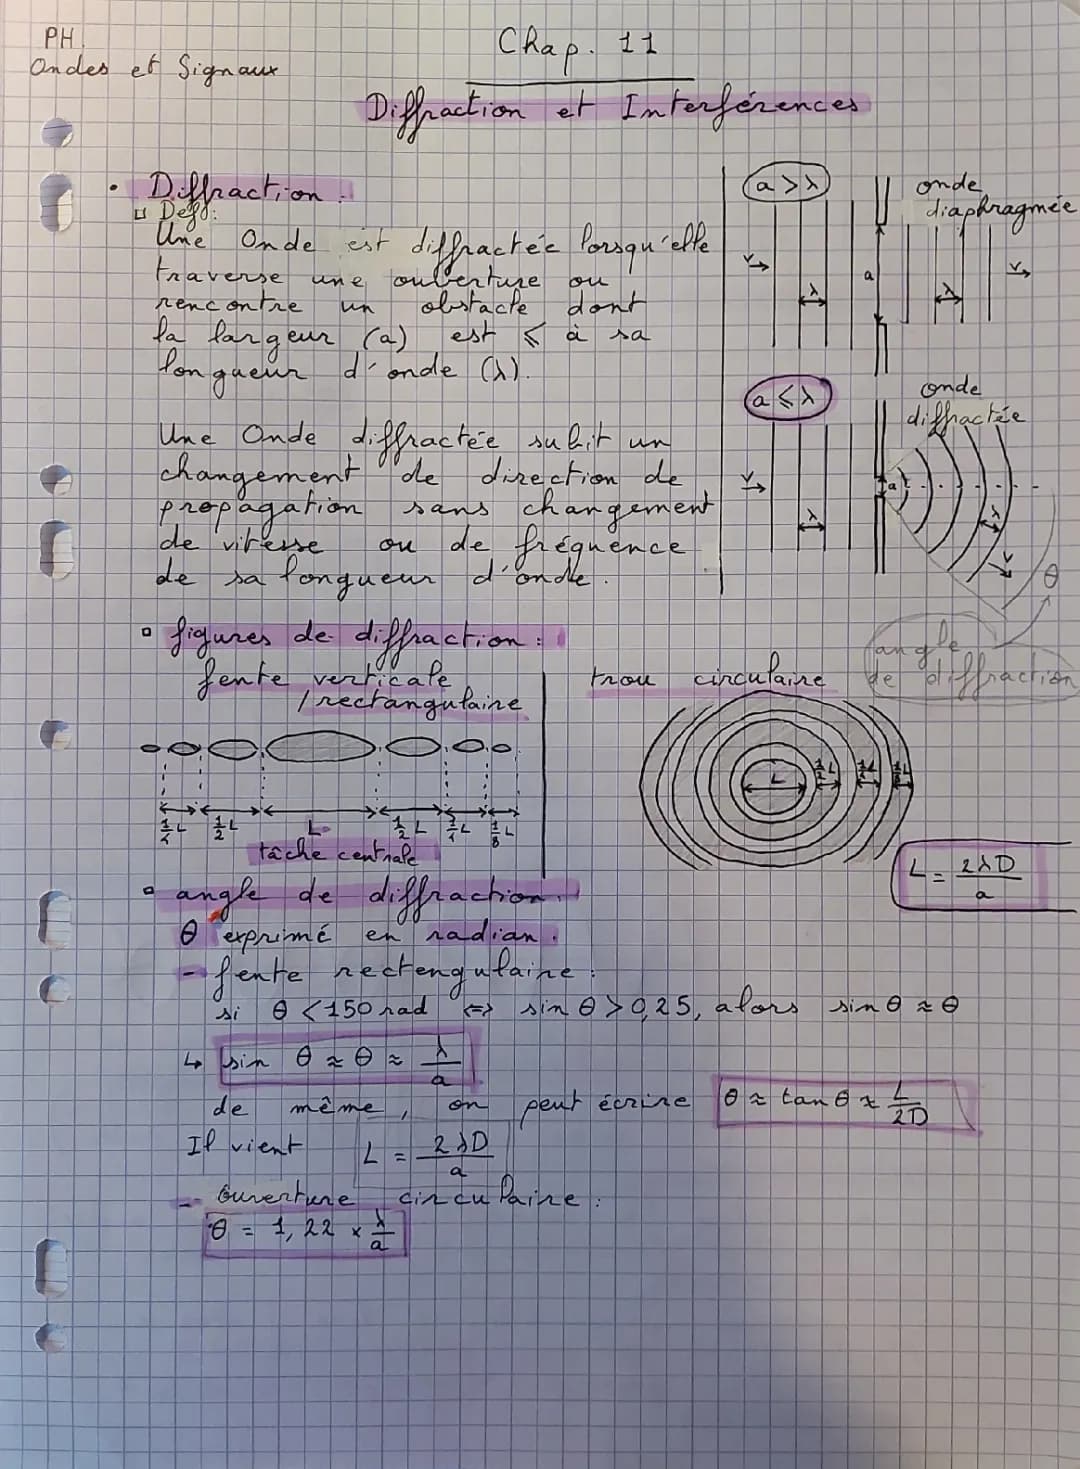 PH
Ondes et Signaux
Chap. 11
Diffraction et Interférences
• Diffraction :
Def :
Une Onde est diffractée lorsqu'elle
traverse une ouverture ou
rencontre un obstacle dont
la largeur (a) est ⩽ à sa
longueur d'onde (λ).
Une Onde diffractée subit un
changement de direction de
propagation sans changement
de vitesse ou de fréquence
de sa longueur d'onde.
a > λ
onde
diaphragmée
v
λ
a
λ
v
a ⩽ λ
onde
diffractée
v
λ
a
λ
v
θ
angle
de diffraction
▫ figures de diffraction :
fente verticale
/ rectangulaire
trou circulaire
1/4 L 1/2 L L 1/2 L 1/4 L 1/8 L
tâche centrale
L 1/2 L 1/4 L 1/8 L
L = 2λD/a
▫ angle de diffraction.
θ exprimé en radian.
- fente rectengulaire :
si θ < 150 rad <=> sin θ > 0,25, alors sin θ ≈ θ
↳ sin θ ≈ θ ≈ λ/a
de même, on peut écrire θ ≈ tan θ ≈ L/2D
Il vient L = 2λD/a
- Ouverture circulaire :
θ = 1,22 × λ/a